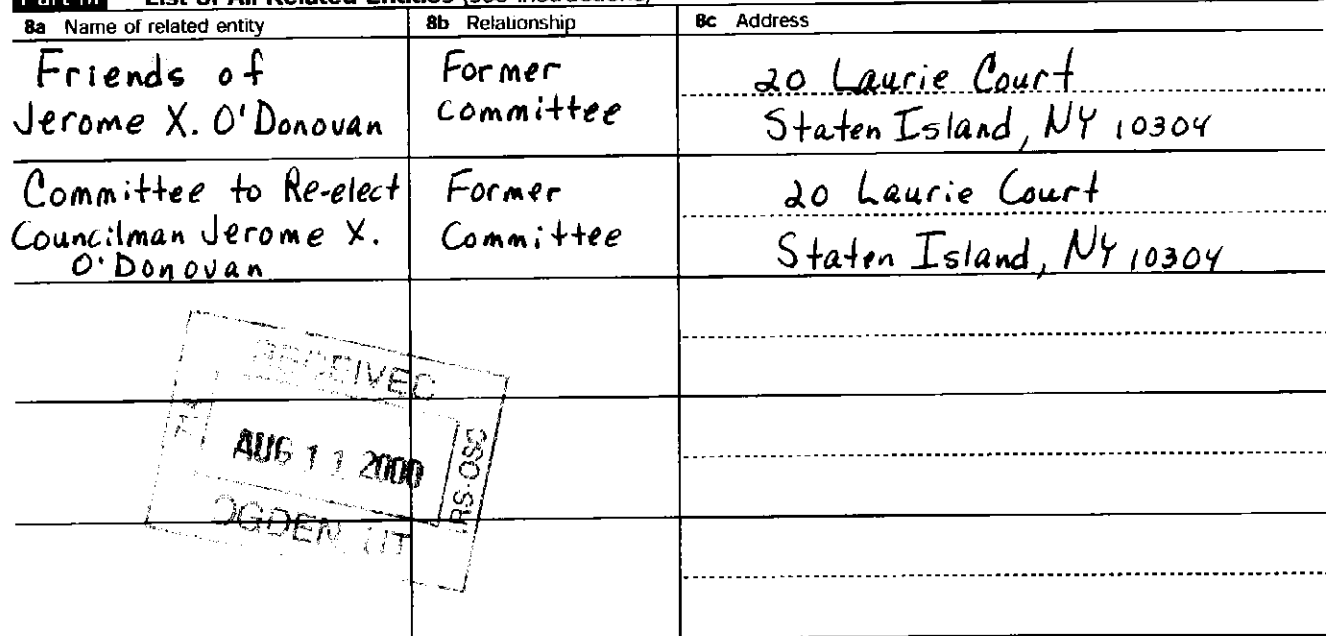 List of All Related Entities (see instructions)
8a Name of related entity
8b Relationship
8c Address
Friends of
Jerome X. O'Donovan
Former
committee
20 Laurie Court
Staten Island, NY 10304
Committee to Re-elect
Councilman Jerome X.
O'Donovan
Former
Committee
20 Laurie Court
Staten Island, NY 10304
RECEIVED
AUG 11 2000
IRS-OSC
OGDEN, UT